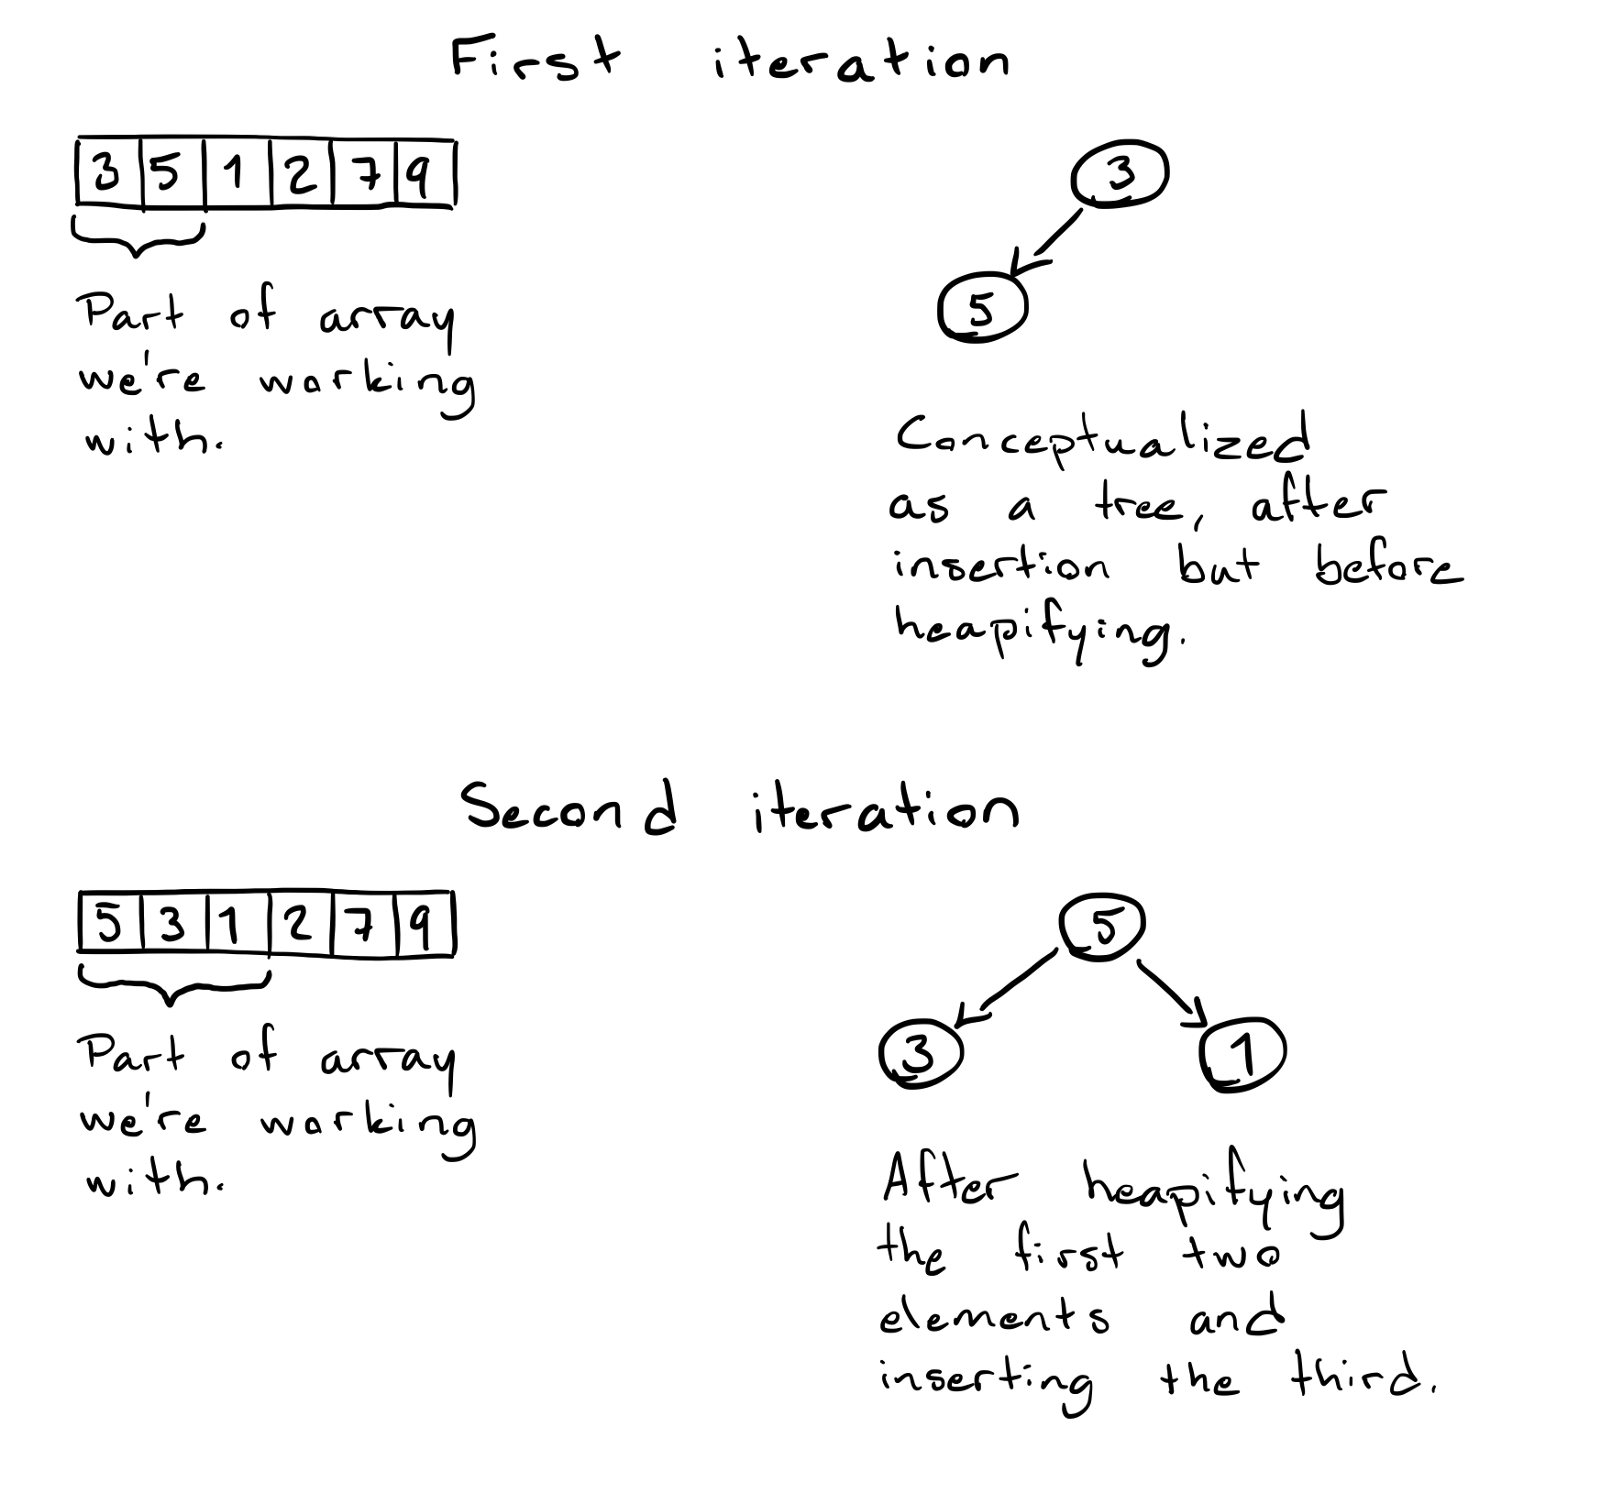 First iteration
3 5 1 2 7 9
3
5
Part of array
we're working
with.
Conceptualized
as a tree, after
insertion but before
heapifying.
Second iteration
5 3 1 2 7 9
5
3 1
Part of array
we're working
with.
After heapifying
the first two
elements and
inserting the third.